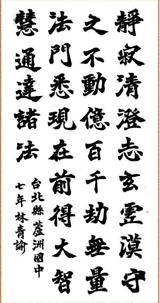 靜寂清澄志玄虛漠守
之不動億百千劫無量
法門悉現在前得大智
慧通達諸法
台北縣蘆洲國中
七年林青諭